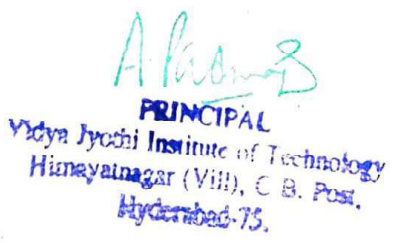 PRINCIPAL
Vidya Jyothi Institute of Technology
Himayatnagar (Vill), C. B. Post,
Hyderabad-75.